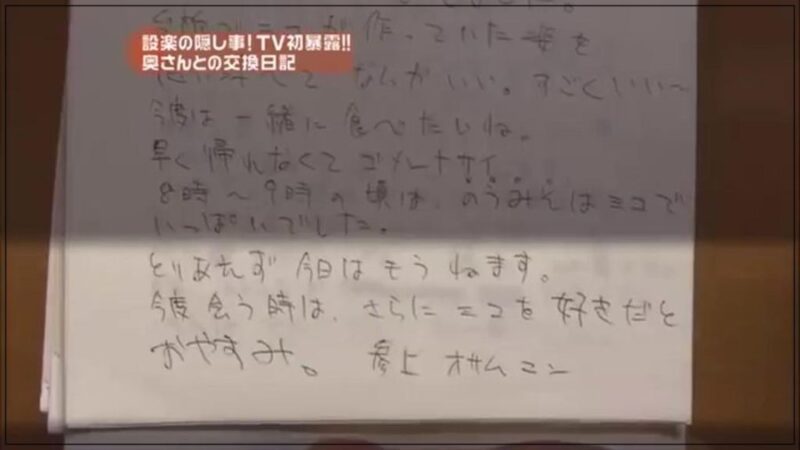 設楽の隠し事!TV初暴露!!
奥さんとの交換日記
作っていた姿を
なんかいい。すごくいい〜
今度は一緒に食べたいね。
早く帰れなくてゴメンナサイ。
8時〜9時の頃は、のうみそはミコで
いっぱいでした。
とりあえず今日はもうねます。
今度会う時は、さらにミコを好きだと
おやすみ。 参上 オサムニン